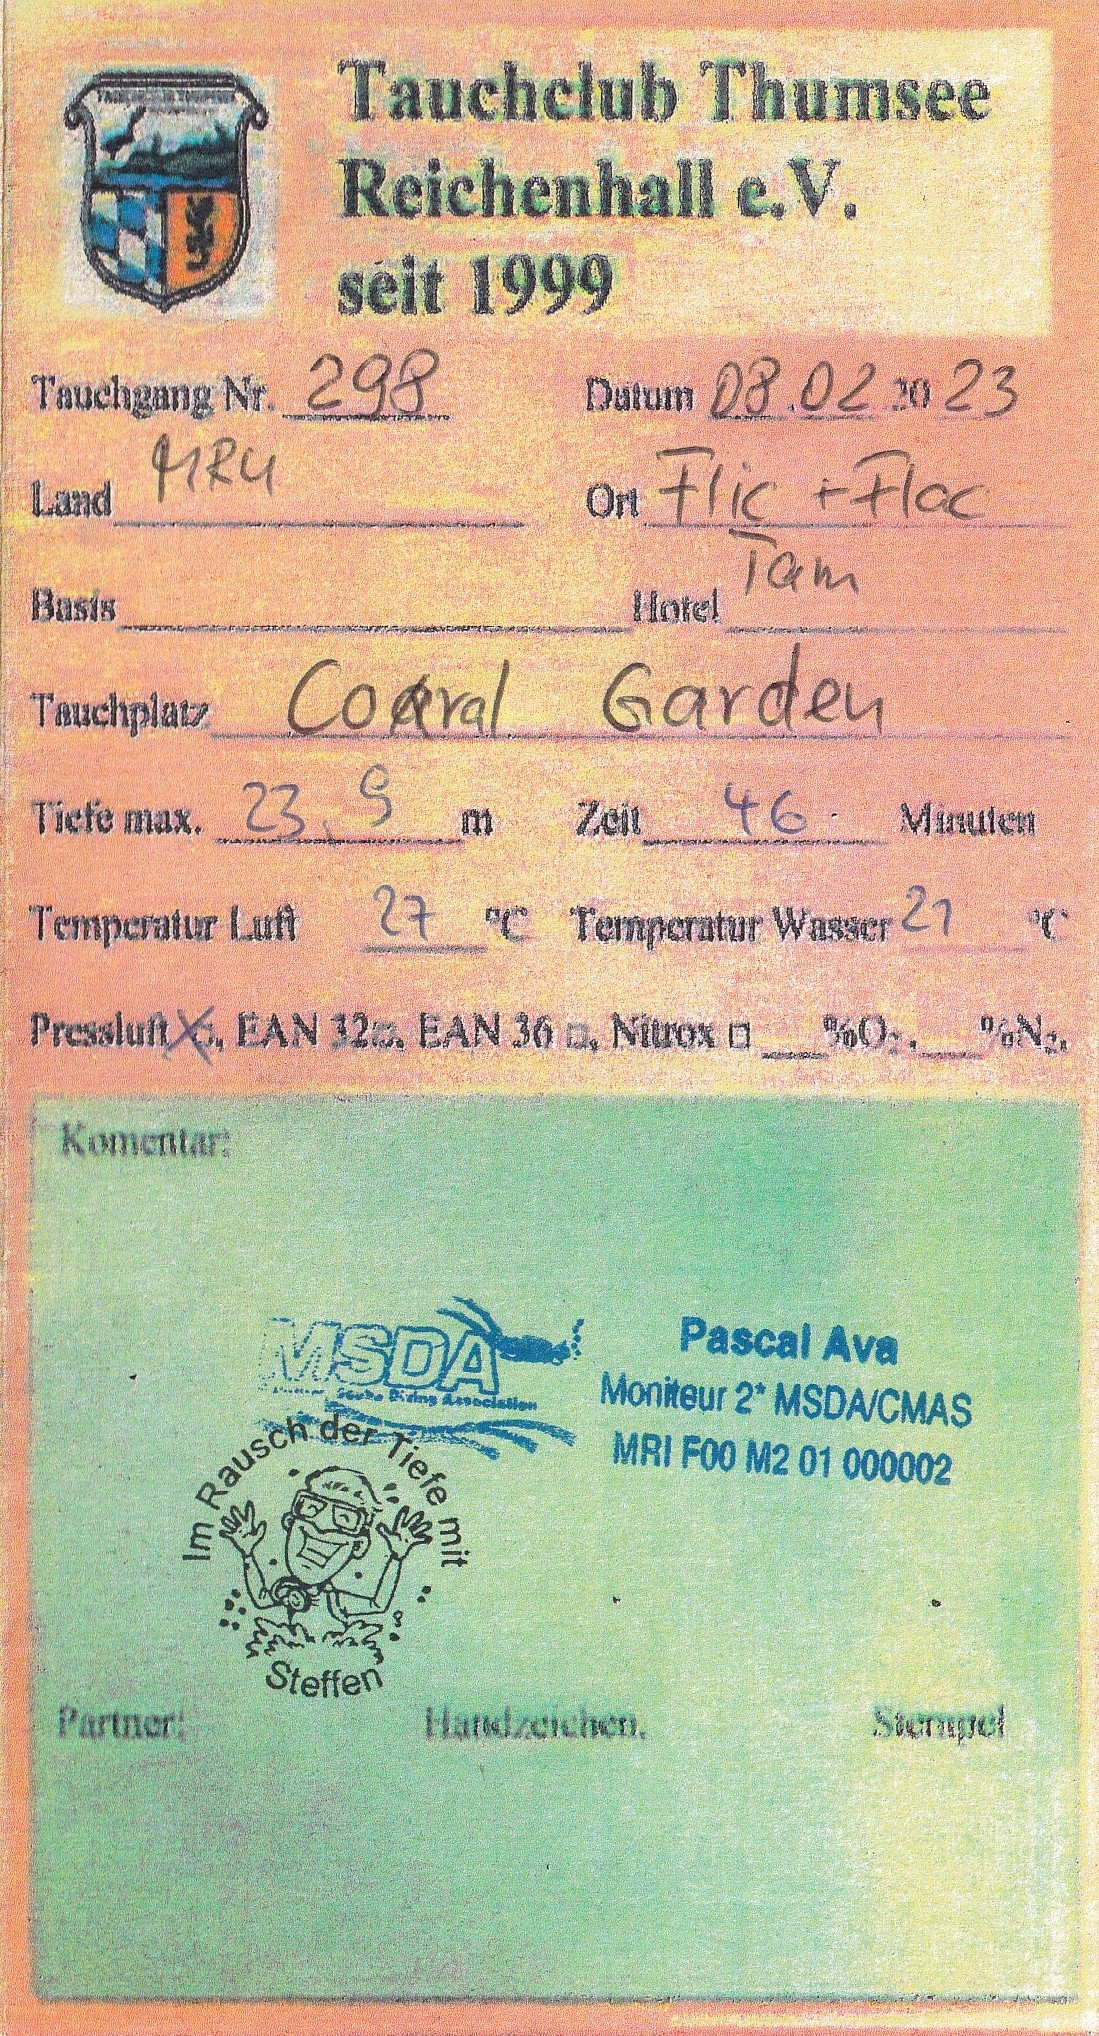 Tauchclub Thumsee
Reichenhall e.V.
seit 1999
Tauchgang Nr. 298 Datum 08.02 20 23
Land MRU Ort Flic + Flac
Basis Hotel Tam
Tauchplatz Coral Garden
Tiefe max. 23,9 m Zeit 46 Minuten
Temperatur Luft 27 °C Temperatur Wasser 21 °C
Pressluft X, EAN 32 □, EAN 36 □, Nitrox □ ___%O₂, ___%N₂,
Komentar:
MSDA
Scuba Diving Association
Pascal Ava
Moniteur 2* MSDA/CMAS
MRI F00 M2 01 000002
Im Rausch der Tiefe mit
Steffen
Partner: Handzeichen. Stempel